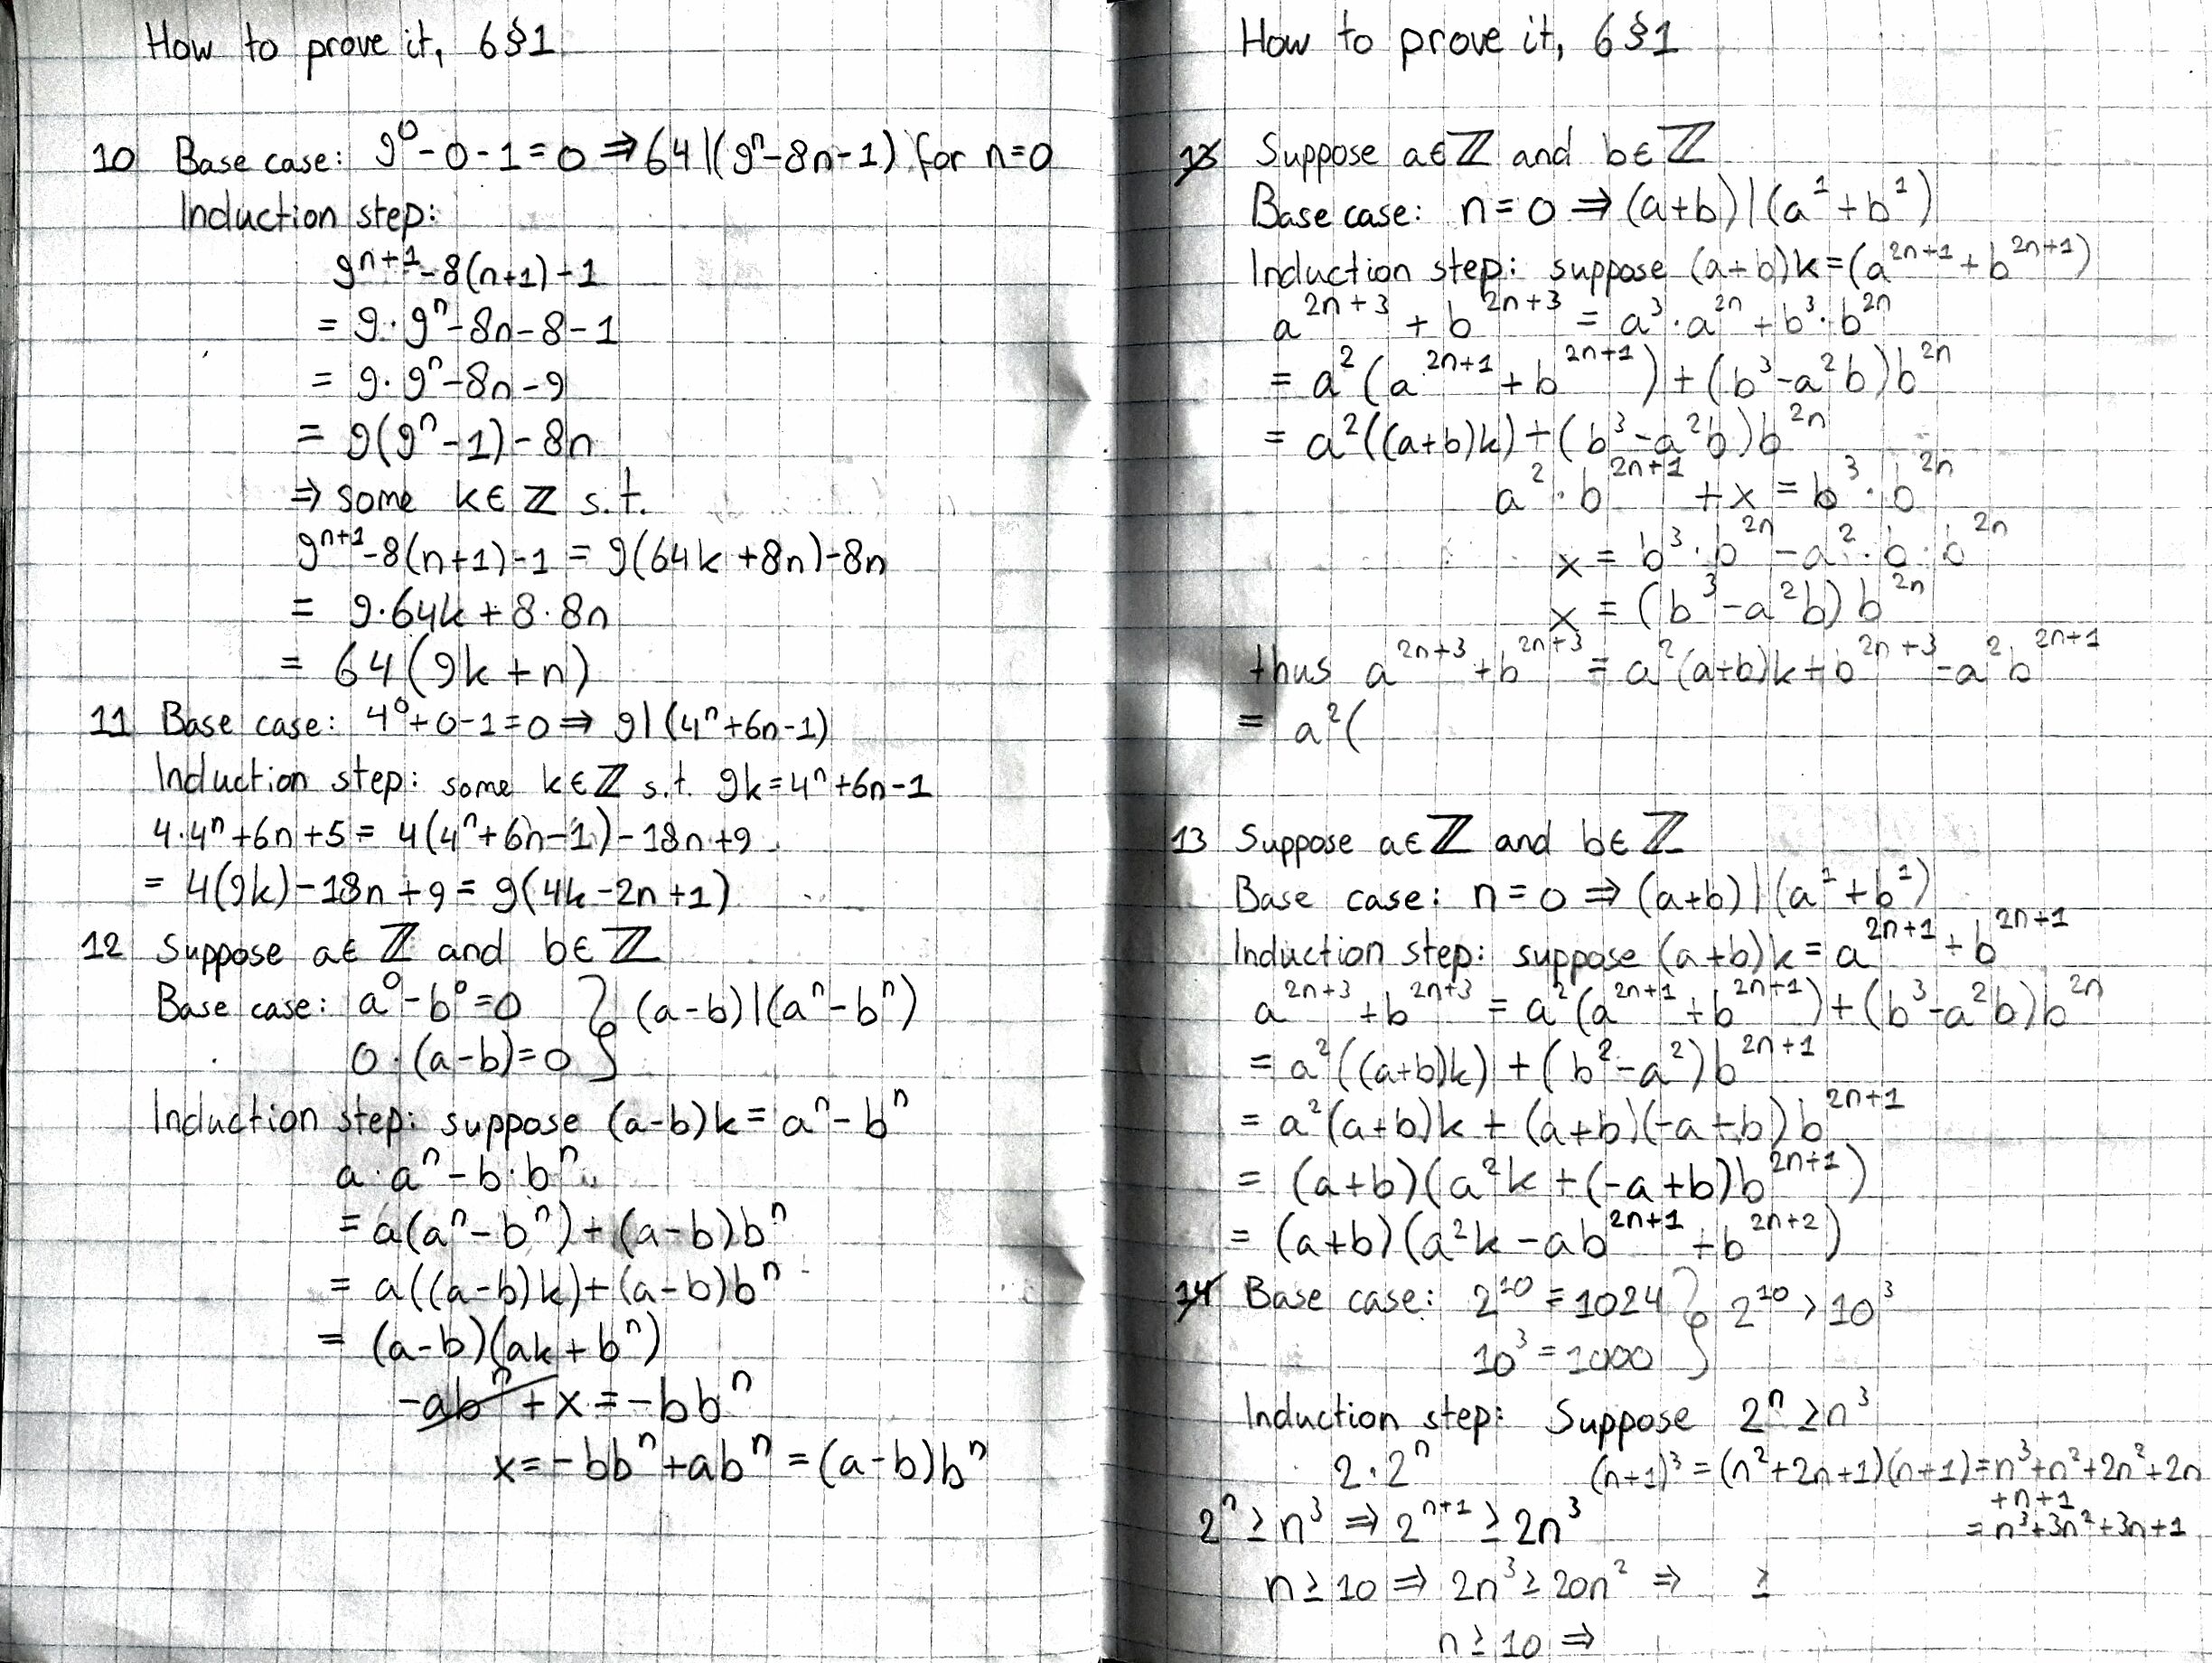 How to prove it, 6§1
10 Base case: 9⁰-0-1=0 ⇒ 64|(9ⁿ-8n-1) for n=0
Induction step:
9ⁿ⁺¹-8(n+1)-1
= 9·9ⁿ-8n-8-1
= 9·9ⁿ-8n-9
= 9(9ⁿ-1)-8n
⇒ some k∈ℤ s.t.
9ⁿ⁺¹-8(n+1)-1 = 9(64k+8n)-8n
= 9·64k+8·8n
= 64(9k+n)
11 Base case: 4⁰+0-1=0 ⇒ 9|(4ⁿ+6n-1)
Induction step: some k∈ℤ s.t. 9k=4ⁿ+6n-1
4·4ⁿ+6n+5 = 4(4ⁿ+6n-1)-18n+9
= 4(9k)-18n+9 = 9(4k-2n+1)
12 Suppose a∈ℤ and b∈ℤ
Base case: a⁰-b⁰=0 } (a-b)|(aⁿ-bⁿ)
0·(a-b)=0
Induction step: suppose (a-b)k = aⁿ-bⁿ
a·aⁿ-b·bⁿ
= a(aⁿ-bⁿ)+(a-b)bⁿ
= a((a-b)k)+(a-b)bⁿ
= (a-b)(ak+bⁿ)
-abⁿ+x=-bbⁿ
x=-bbⁿ+abⁿ=(a-b)bⁿ
How to prove it, 6§1
13 Suppose a∈ℤ and b∈ℤ
Base case: n=0 ⇒ (a+b)|(a¹+b¹)
Induction step: suppose (a+b)k=(a²ⁿ⁺¹+b²ⁿ⁺¹)
a²ⁿ⁺³+b²ⁿ⁺³ = a³·a²ⁿ+b³·b²ⁿ
= a²(a²ⁿ⁺¹+b²ⁿ⁺¹)+(b³-a²b)b²ⁿ
= a²((a+b)k)+(b³-a²b)b²ⁿ
a²·b²ⁿ⁺¹+x=b³·b²ⁿ
x = b³·b²ⁿ-a²·b·b²ⁿ
x = (b³-a²b)b²ⁿ
thus a²ⁿ⁺³+b²ⁿ⁺³ = a²(a+b)k+b²ⁿ⁺³-a²b²ⁿ⁺¹
= a²(
13 Suppose a∈ℤ and b∈ℤ
Base case: n=0 ⇒ (a+b)|(a¹+b¹)
Induction step: suppose (a+b)k=a²ⁿ⁺¹+b²ⁿ⁺¹
a²ⁿ⁺³+b²ⁿ⁺³ = a²(a²ⁿ⁺¹+b²ⁿ⁺¹)+(b³-a²b)b²ⁿ
= a²((a+b)k)+(b²-a²)b²ⁿ⁺¹
= a²(a+b)k+(a+b)(-a+b)b²ⁿ⁺¹
= (a+b)(a²k+(-a+b)b²ⁿ⁺¹)
= (a+b)(a²k-ab²ⁿ⁺¹+b²ⁿ⁺²)
14 Base case: 2¹⁰=1024 } 2¹⁰>10³
10³=1000
Induction step: Suppose 2ⁿ≥n³
2·2ⁿ (n+1)³=(n²+2n+1)(n+1)=n³+n²+2n²+2n
+n+1
2ⁿ≥n³ ⇒ 2ⁿ⁺¹≥2n³ =n³+3n²+3n+1
n≥10 ⇒ 2n³≥20n² ⇒ ≥
n≥10 ⇒